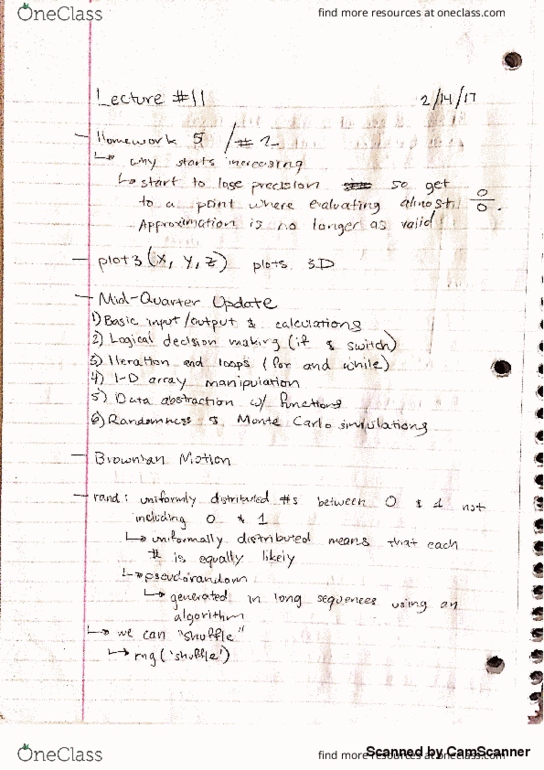 OneClass
find more resources at oneclass.com
Lecture #11
2/14/17
- Homework 5 / # 2
↳ why starts increasing
↳ start to lose precision so get
to a point where evaluating almost 0/0.
Approximation is no longer as valid
- plot3(x, y, z) plots 3D
- Mid-Quarter Update
1) Basic input/output & calculations
2) Logical decision making (if & switch)
3) Iteration and loops (for and while)
4) 1-D array manipulation
5) Data abstraction w/ functions
6) Randomness & Monte Carlo simulations
- Brownian Motion
- rand: uniformly distributed #s between 0 & 1 not
including 0 & 1
↳ uniformally distributed means that each
# is equally likely
↳ pseudorandom
↳ generated in long sequences using an
algorithm
↳ we can "shuffle"
↳ rng('shuffle')
OneClass
find more resources at oneclass.com
Scanned by CamScanner